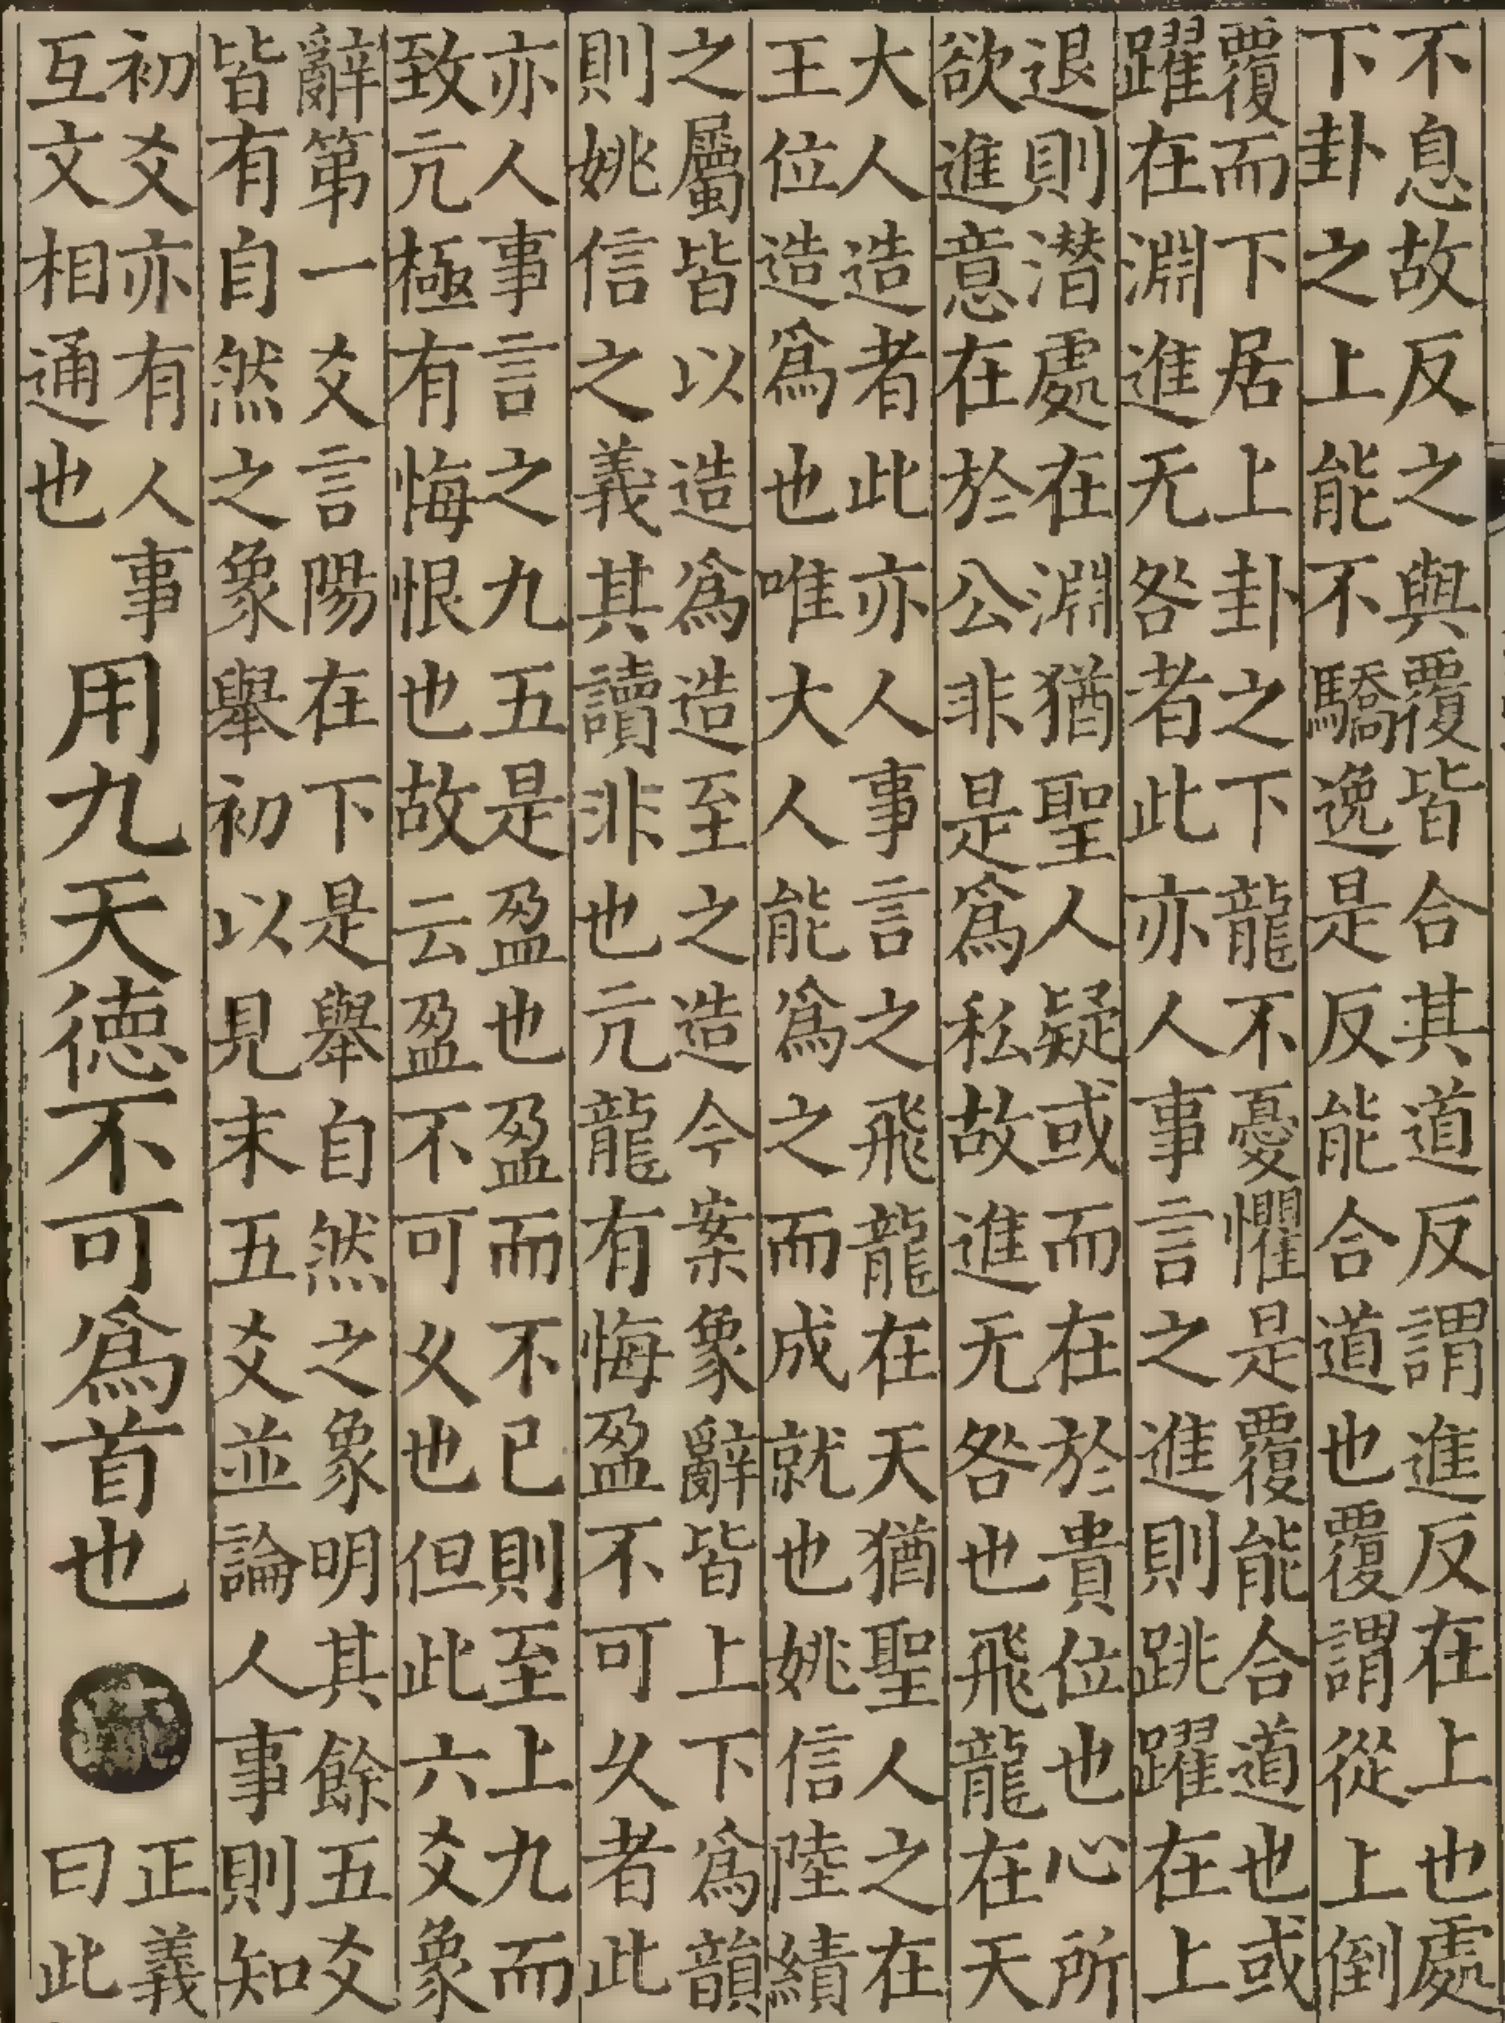 不息故反之與覆皆合其道反謂進反在上也處
下卦之上能不驕逸是反能合道也覆謂從上倒
覆而下居上卦之下龍不憂懼是覆能合道也或
躍在淵進无咎者此亦人事言之進則跳躍在上
退則潜處在淵猶聖人疑或而在於貴位也心所
欲進意在於公非是爲私故進无咎也飛龍在天
大人造者此亦人事言之飛龍在天猶聖人之在
王位造爲也唯大人能爲之而成就也姚信陸績
之屬皆以造爲造至之造今案象辭皆上下爲韻
則姚信之義其讀非也亢龍有悔盈不可久者此
亦人事言之九五是盈也盈而不已則至上九而
致亢極有悔恨也故云盈不可久也但此六爻象
辭第一爻言陽在下是舉自然之象明其餘五爻
皆有自然之象舉初以見末五爻並論人事則知
初爻亦有人事
互文相通也
用九天德不可爲首也
正義
曰此